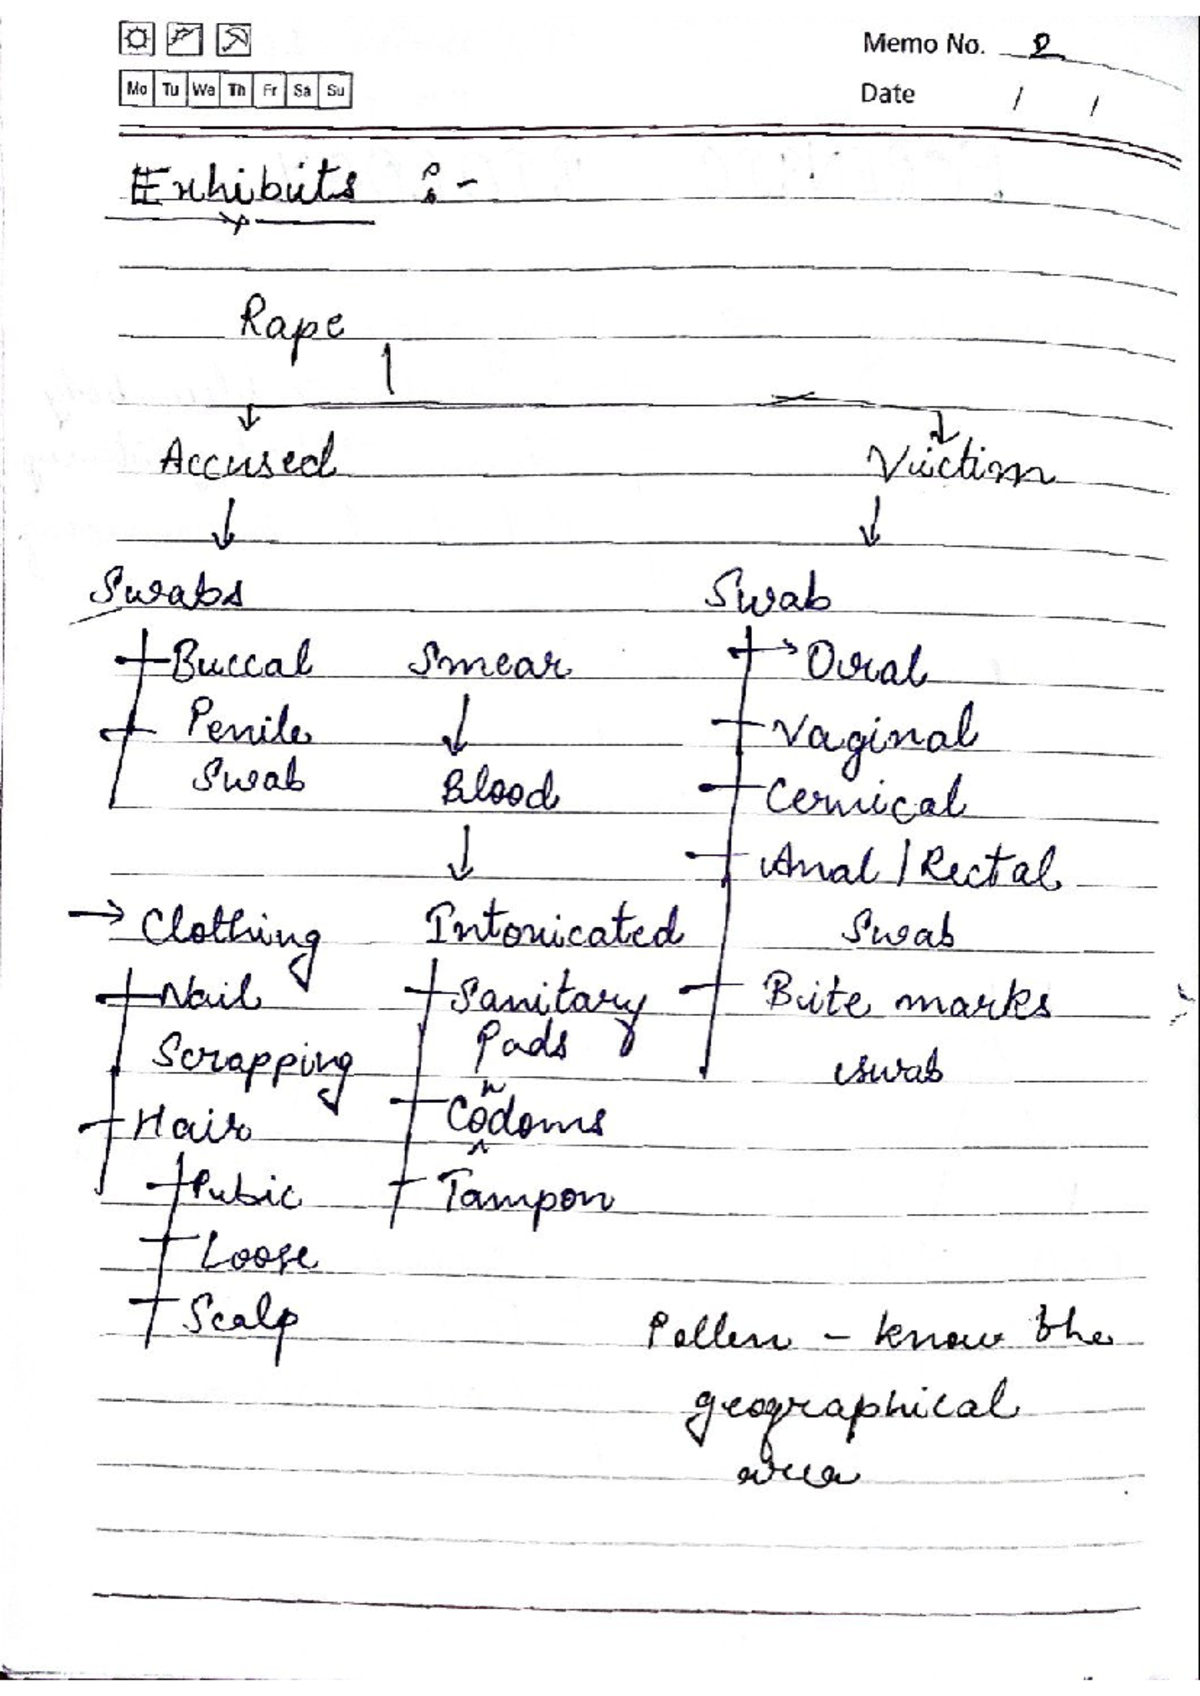 Memo No. 2
Mo Tu We Th Fr Sa Su
Date / /
Exhibits :-
Rape
Accused Victim
Swabs Swab
Buccal Smear Oral
Penile Vaginal
Swab Blood Cervical
Anal / Rectal
Clothing Intoxicated Swab
Nail Sanitary Bite marks
Pads
Scrapping swab
Condoms
Hair
Pubic Tampon
Loose
Scalp Pollen - know the
geographical
area